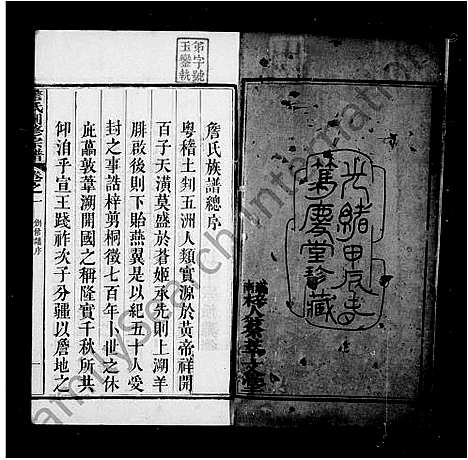 光緒甲辰年
篤慶堂珍藏
第字號
玉鑾執
詹氏族譜總序
粵稽土判五洲人類實源於黃帝祥開
百子天潢莫盛於蒼姬承先則上溯羊
腓啟後則下貽燕翼是以紀五十人受
封之事誥梓剪桐徵七百年卜世之休
庇藟敦葦溯開國之稱隆實千秋所共
仰洎乎宣王踐祚次子分疆以詹地之
卷之一
創修譜序
一
FamilySearch International